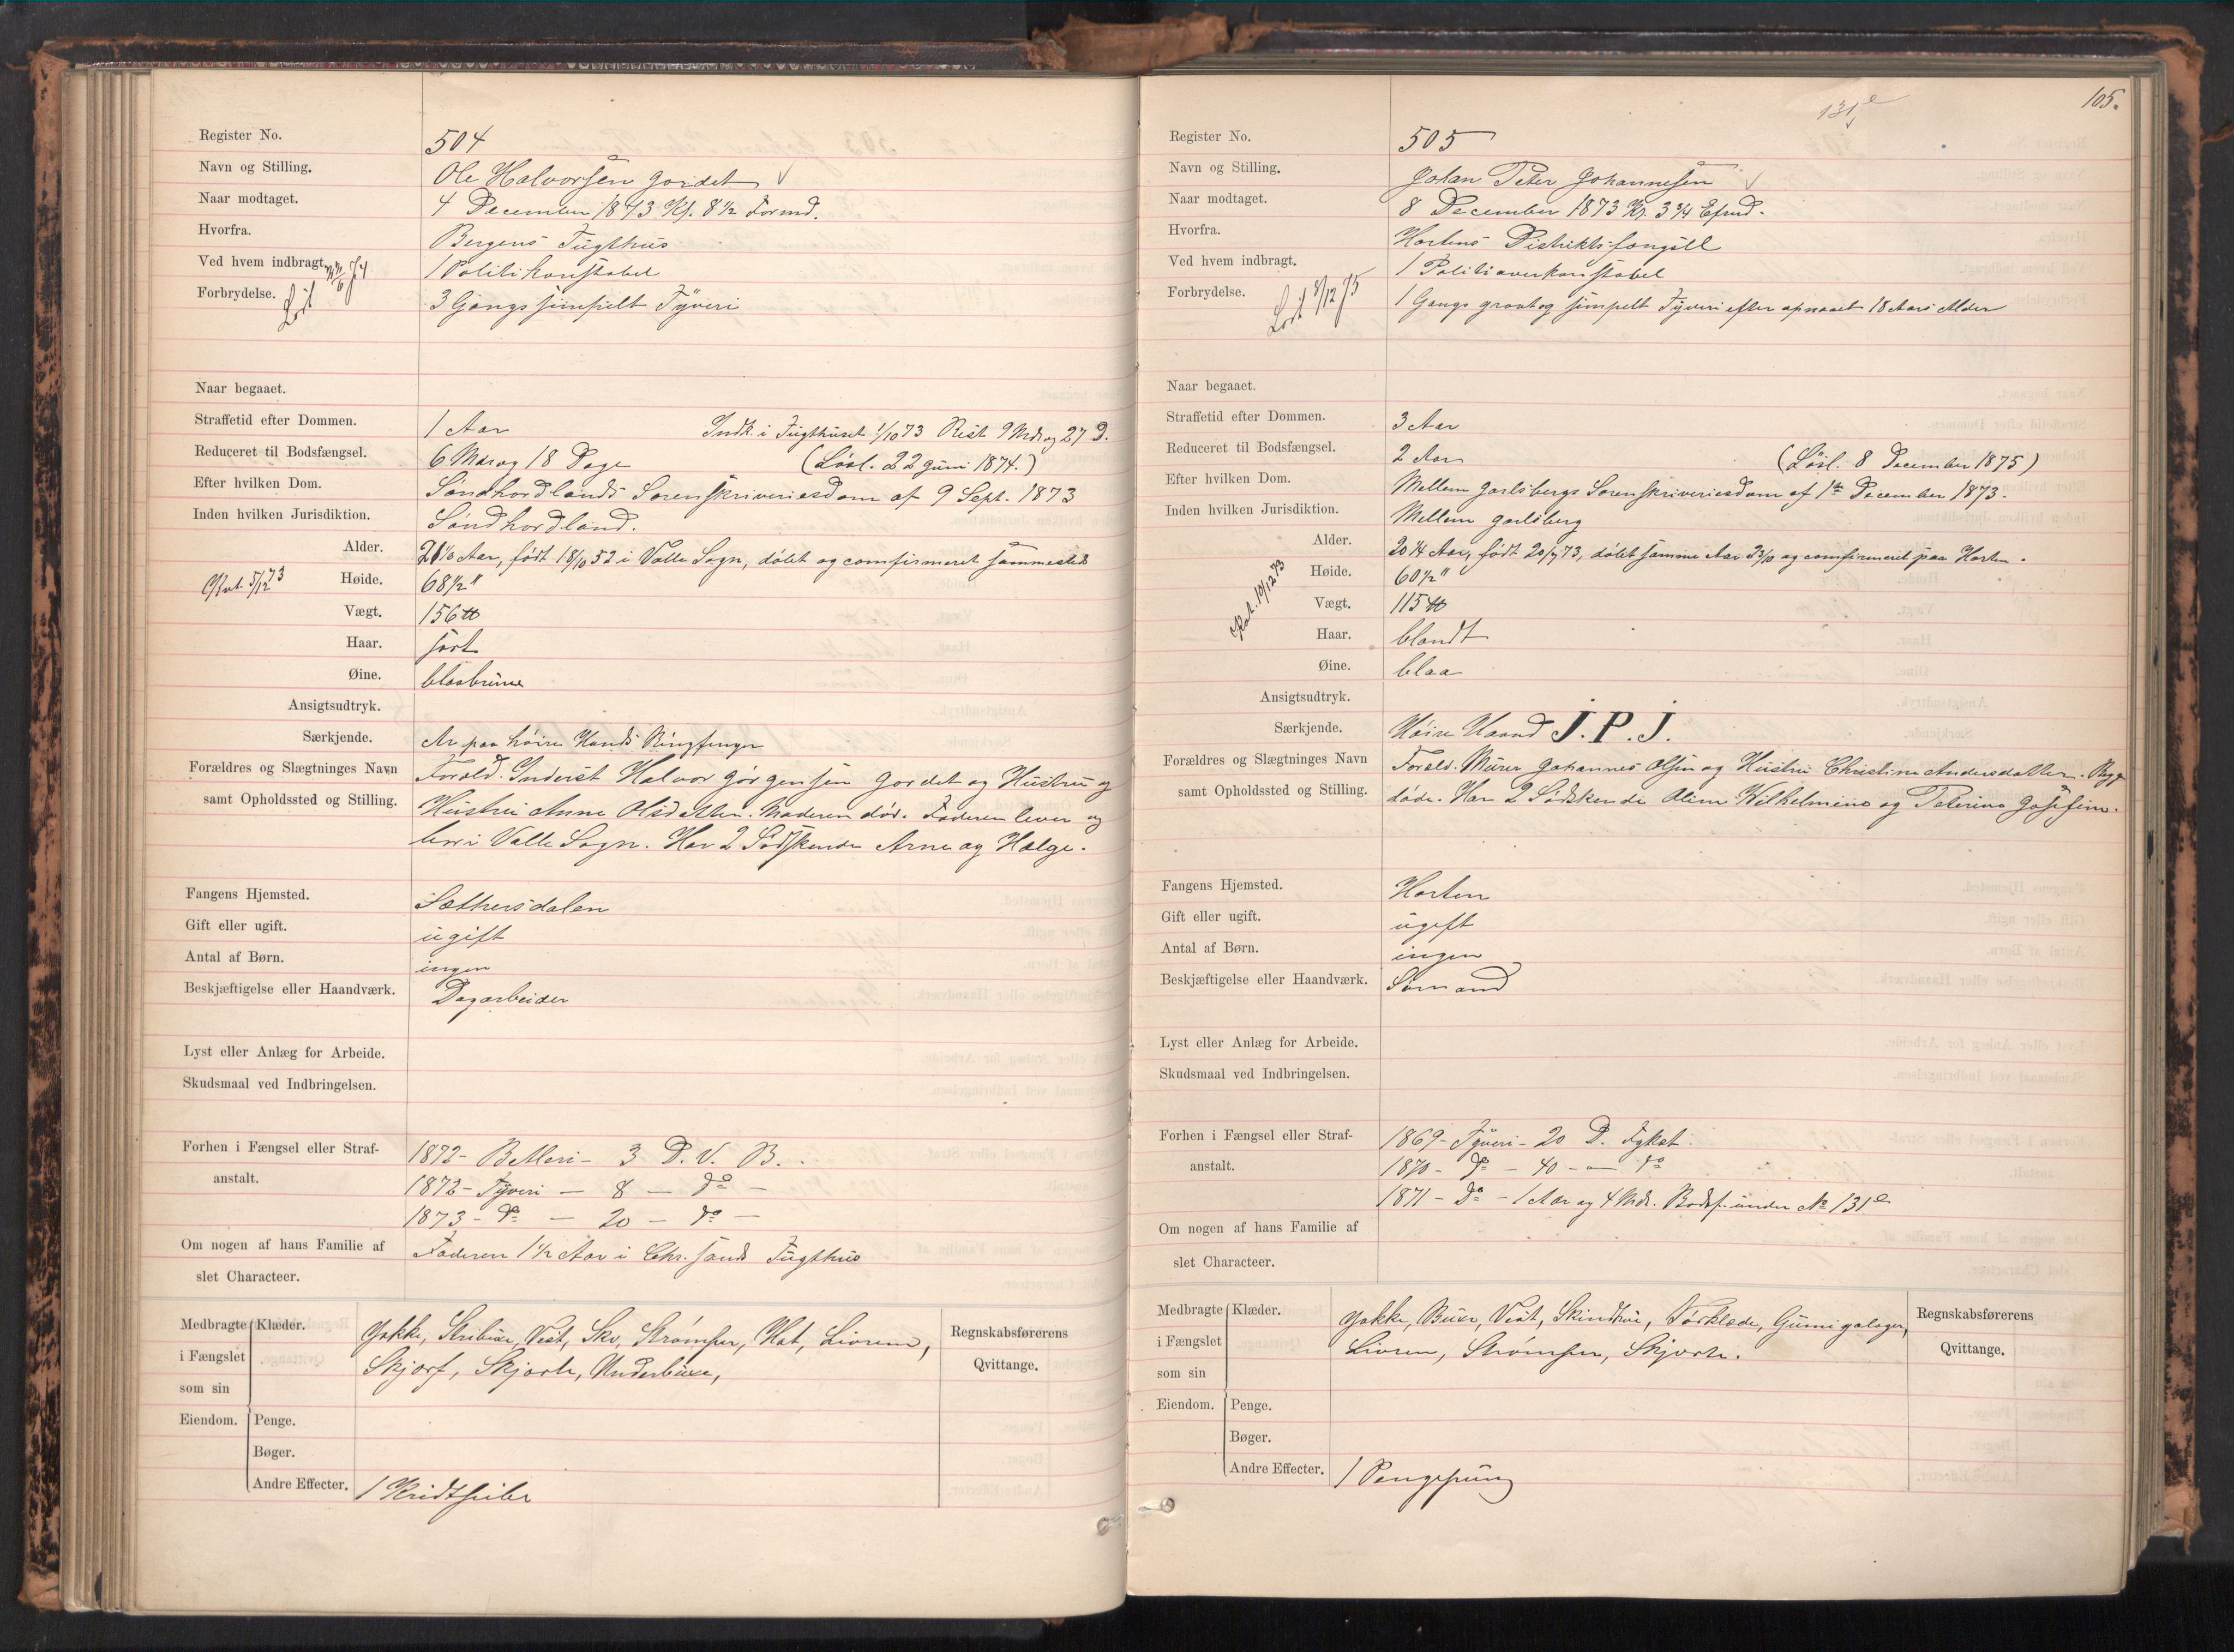 Register No. 504
Navn og Stilling. Ole Halvorsen Jordet
Naar modtaget. 4 December 1873 Kl. 8 1/2 Formd.
Hvorfra. Bergens Tugthus
Ved hvem indbragt. 1 Politikonstabel
Forbrydelse. 3 Gangs simpelt Tyveri
Løst 22/6 74
Naar begaaet.
Straffetid efter Dommen. 1 Aar Indk. i Tugthuset 1/10 73 Rest 9 Mdr og 27 D.
Reduceret til Bodsfængsel. 6 Mdr og 18 Dage (Løsl. 22 Juni 1874.)
Efter hvilken Dom. Søndhordlands Sorenskriveriesdom af 9 Sept. 1873
Inden hvilken Jurisdiktion. Søndhordland.
Alder. Aar, født 18/10 52 i Valle Sogn, døbt og confirmeret sammesteds
5/12 73
Høide. 68 1/2"
Vægt. 156 ℔
Haar. sort
Øine. blaabrune
Ansigtsudtryk.
Særkjende. Ar paa høire Haands Ringfinger
Forældres og Slægtninges Navn Foræld. Inderst Halvor Jørgensen Jordet og Hustru og
samt Opholdssted og Stilling. Hustru Anne Olsdatter. Moderen død. Faderen lever og
bor i Valle Sogn. Har 2 Sødskende Arne og Helge.
Fangens Hjemsted. Sæthersdalen
Gift eller ugift. ugift
Antal af Børn. ingen
Beskjæftigelse eller Haandværk. Dagarbeider
Lyst eller Anlæg for Arbeide.
Skudsmaal ved Indbringelsen.
Forhen i Fængsel eller Straf- 1872 - Betleri - 3 D. V. B.
anstalt. 1872 - Tyveri - 8 - do -
1873 - do - 20 - do -
Om nogen af hans Familie af Faderen 1 1/2 Aar i Chr.sands Tugthus
slet Characteer.
Medbragte Klæder. Jakke, Buxe, Vest, Sko, Strømper, Hat, Livrem, Regnskabsførerens
i Fængslet Skjærf, Skjorte, Underbuxe, Qvittange.
som sin
Eiendom. Penge.
Bøger.
Andre Effecter. 1 Kridtpibe
131e
105.
Register No. 505
Navn og Stilling. Johan Peter Johannesen
Naar modtaget. 8 December 1873 Kl. 3 3/4 Eftmd.
Hvorfra. Hortens Distriktsfængsel
Ved hvem indbragt. 1 Politioverkonstabel
Forbrydelse. 1 Gangs grovt og simpelt Tyveri efter opnaaet 18 Aars Alder
Løst 8/12 75
Naar begaaet.
Straffetid efter Dommen. 3 Aar
Reduceret til Bodsfængsel. 2 Aar (Løsl. 8 December 1875)
Efter hvilken Dom. Mellem Jarlsbergs Sorenskriveriesdom af 1ste December 1873.
Inden hvilken Jurisdiktion. Mellem Jarlsberg
Alder. 20 1/4 Aar, født 20/7 73, døbt samme Aar 23/10 og confirmeret paa Horten.
10/12 73
Høide. 60 1/2"
Vægt. 115 ℔
Haar. blondt
Øine. blaa
Ansigtsudtryk.
Særkjende. Høire Haand J. P. J.
Forældres og Slægtninges Navn Foræld. Murer Johannes Olsen og Hustru Christine Andersdatter. Begge
samt Opholdssted og Stilling. døde. Har 2 Sødskende Oline Wilhelmine og Peterine Josefine.
Fangens Hjemsted. Horten
Gift eller ugift. ugift
Antal af Børn. ingen
Beskjæftigelse eller Haandværk. Sømand
Lyst eller Anlæg for Arbeide.
Skudsmaal ved Indbringelsen.
Forhen i Fængsel eller Straf- 1869 - Tyveri - 20 D.
anstalt. 1870 - do - 40 - do
1871 - do - 1 Aar og 4 Mdr. Bodsf. under No 131e
Om nogen af hans Familie af
slet Characteer.
Medbragte Klæder. Jakke, Buxe, Vest, Skindhue, Tørklæde, Gumigaloger, Regnskabsførerens
i Fængslet Livrem, Strømper, Skjorte. Qvittange.
som sin
Eiendom. Penge.
Bøger.
Andre Effecter. 1 Pengepung